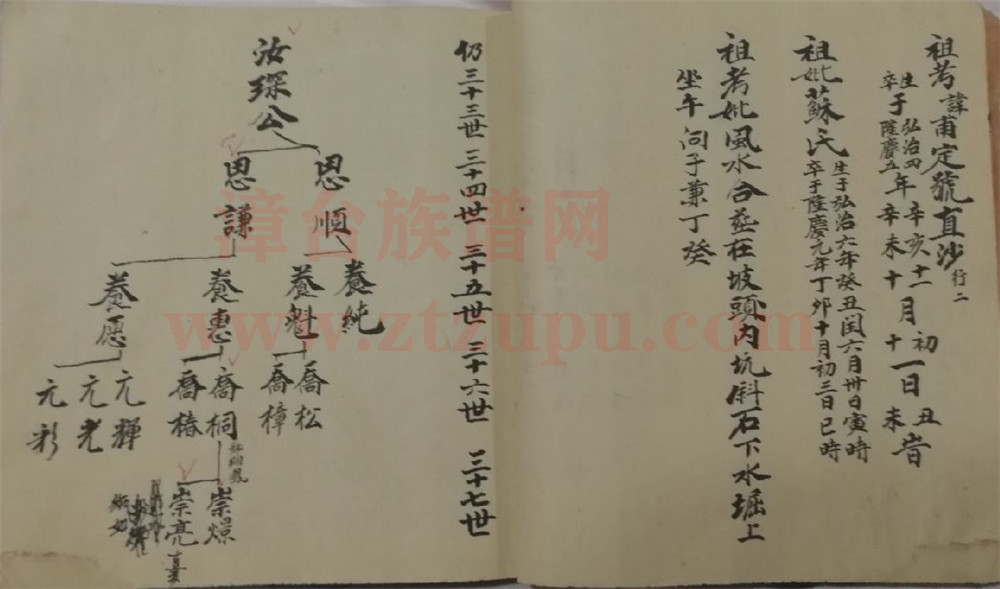 祖考諱甫定號直沙 行二
生于弘治四年辛亥十二月初一日丑時
卒于隆慶五年辛未十月十一日未時
祖妣蘇氏
生于弘治六年癸丑閏六月卅日寅時
卒于隆慶元年丁卯十月初三日巳時
祖考妣風水合葬在坡頭內坑斜石下水堀上
坐午向子兼丁癸
仍三十三世 三十四世 三十五世 三十六世 三十七世
汝琛公
恩順
恩謙
養純
養魁
養惠
養愿
喬松
喬樟
喬桐
喬椿
元輝
元光
元彩
崇燝
崇亮
漳台族谱网
www.ztzupu.com